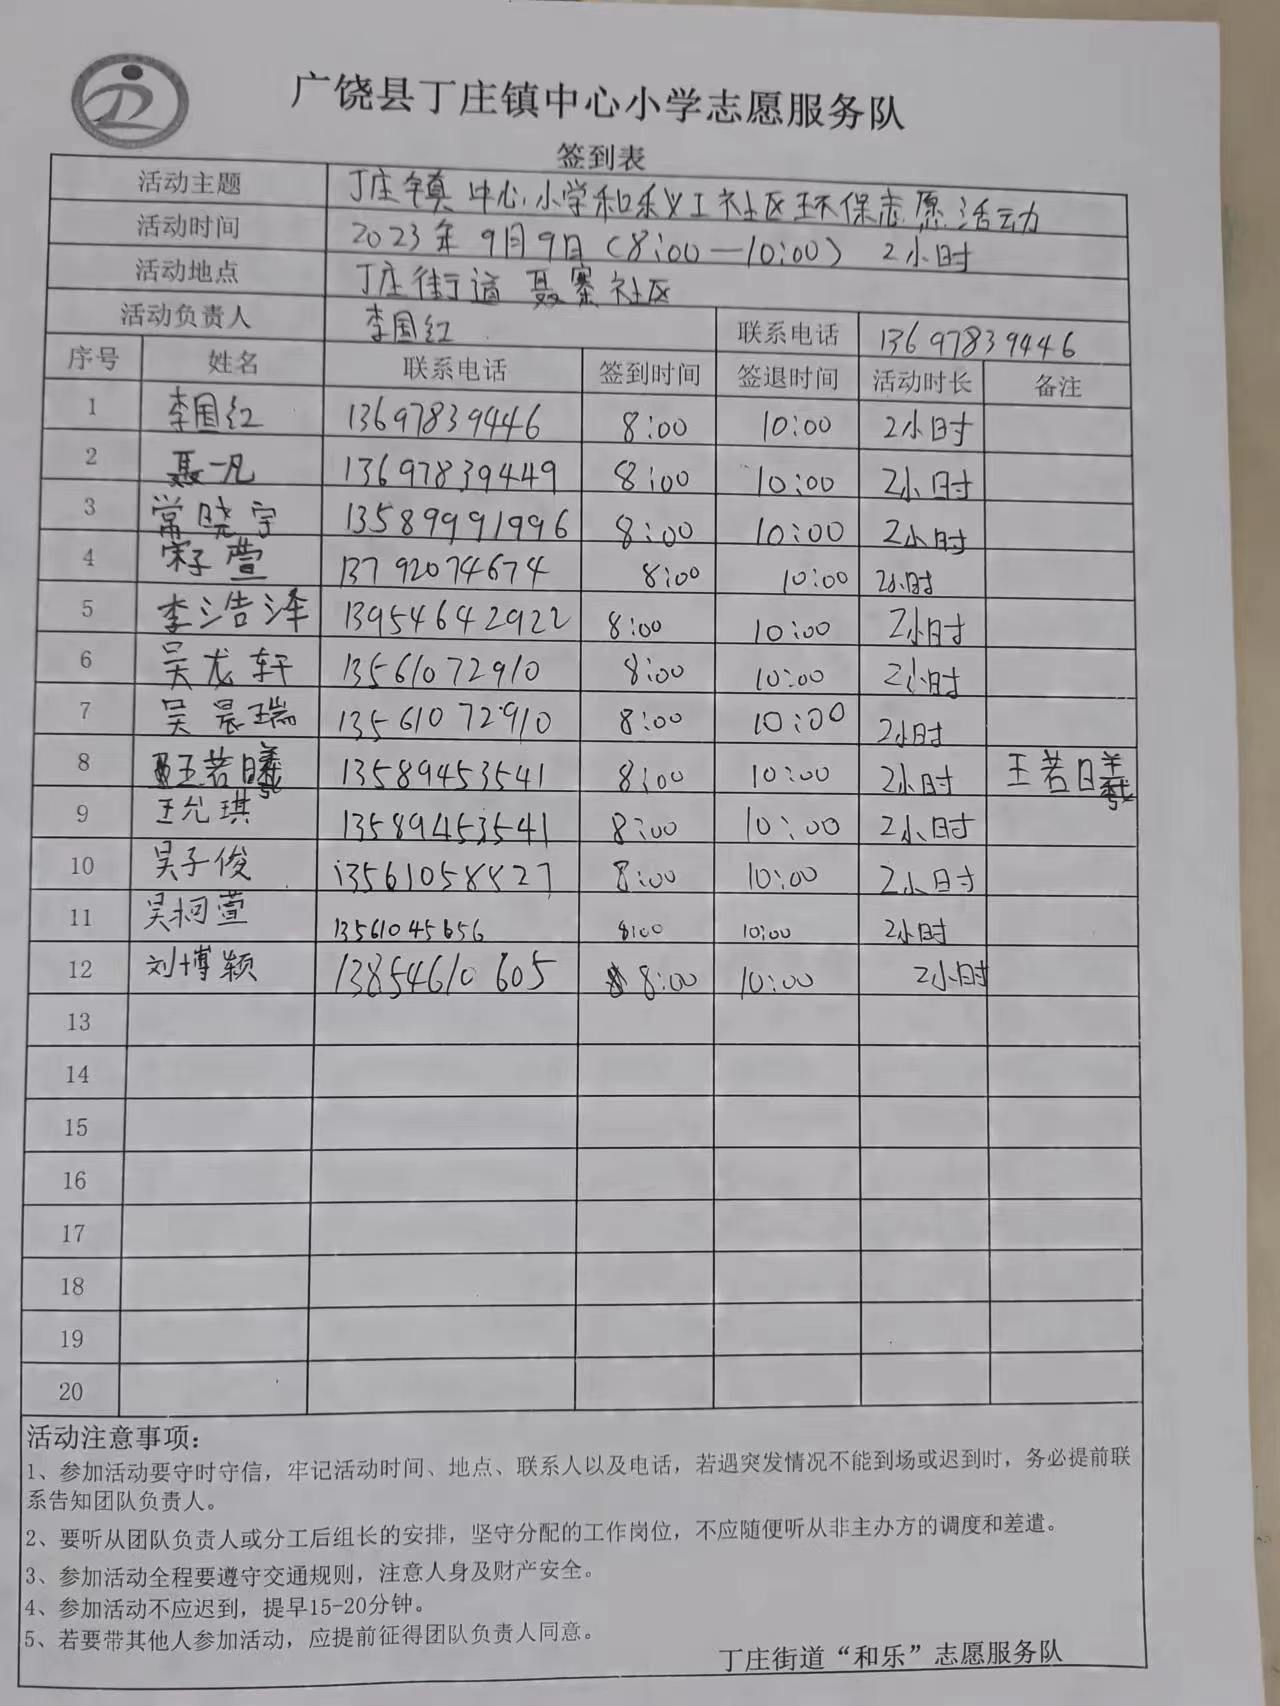 广饶县丁庄镇中心小学志愿服务队
签到表
活动主题 丁庄镇中心小学和乐义工社区环保志愿活动
活动时间 2023年9月9日(8:00—10:00) 2小时
活动地点 丁庄街道聂寨社区
活动负责人 李国红 联系电话 13697839446
序号 姓名 联系电话 签到时间 签退时间 活动时长 备注
1 李国红 13697839446 8:00 10:00 2小时
2 聂一凡 13697839449 8:00 10:00 2小时
3 常晓宇 13589991996 8:00 10:00 2小时
4 宋子萱 13792074674 8:00 10:00 2小时
5 李浩泽 13954642922 8:00 10:00 2小时
6 吴龙轩 13561072910 8:00 10:00 2小时
7 吴晨瑞 13561072910 8:00 10:00 2小时
8 王若曦 13589453541 8:00 10:00 2小时 王若曦
9 王允琪 13589453541 8:00 10:00 2小时
10 吴子俊 13561058827 8:00 10:00 2小时
11 吴柯萱 13561045656 8:00 10:00 2小时
12 刘博颖 13854610605 8:00 10:00 2小时
13
14
15
16
17
18
19
20
活动注意事项：
1、参加活动要守时守信，牢记活动时间、地点、联系人以及电话，若遇突发情况不能到场或迟到时，务必提前联
系告知团队负责人。
2、要听从团队负责人或分工后组长的安排，坚守分配的工作岗位，不应随便听从非主办方的调度和差遣。
3、参加活动全程要遵守交通规则，注意人身及财产安全。
4、参加活动不应迟到，提早15-20分钟。
5、若要带其他人参加活动，应提前征得团队负责人同意。
丁庄街道“和乐”志愿服务队